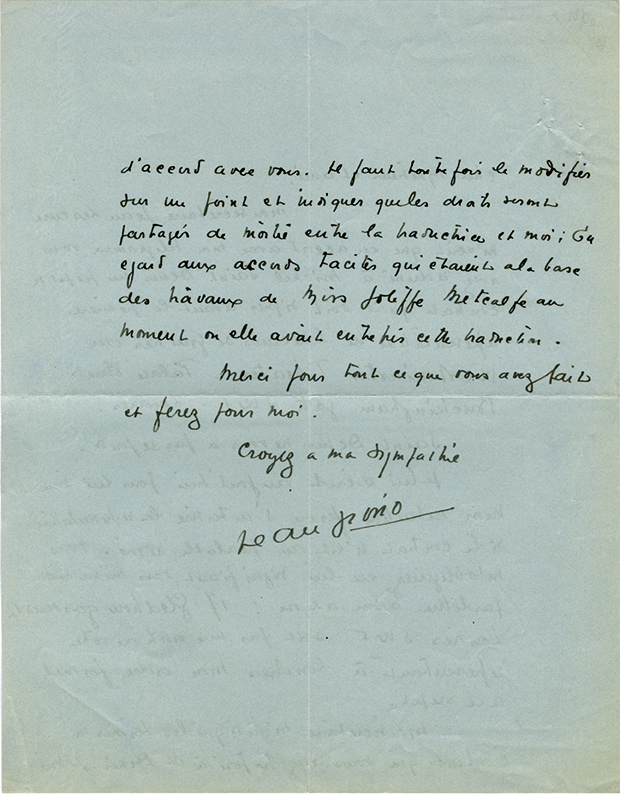 d'accord avec vous. Il faut toutefois le modifier
sur un point et indiquer que les droits seront
partagés de moitié entre la traductrice et moi ; Eu
egard aux accords tacites qui étaient a la base
des travaux de Miss Joliffe Metcalfe au
moment ou elle avait entrepris cette traduction.
Merci pour tout ce que vous avez fait
et ferez pour moi.
Croyez a ma sympathie
Jean Giono